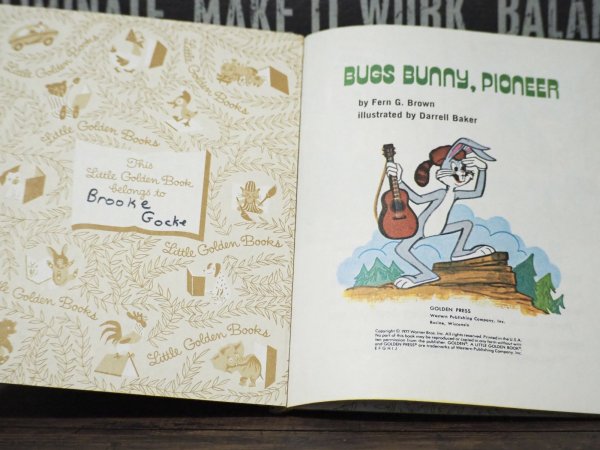 MAKE IT WORK. BALAN
Little Golden Books
Little Golden Books
Little Golden Books
This
Little Golden Book
belongs to
Brooke
Gocke
Little Golden Books
Little Golden Books
Little Golden Books
BUGS BUNNY, PIONEER
by Fern G. Brown
illustrated by Darrell Baker
GOLDEN PRESS
Western Publishing Company, Inc.
Racine, Wisconsin
Copyright © 1977 Warner Bros. Inc. All rights reserved. Printed in the U.S.A.
No part of this book may be reproduced or copied in any form without writ-
ten permission from the publisher. GOLDEN®, A LITTLE GOLDEN BOOK®
and GOLDEN PRESS® are trademarks of Western Publishing Company, Inc.
E F G H I J